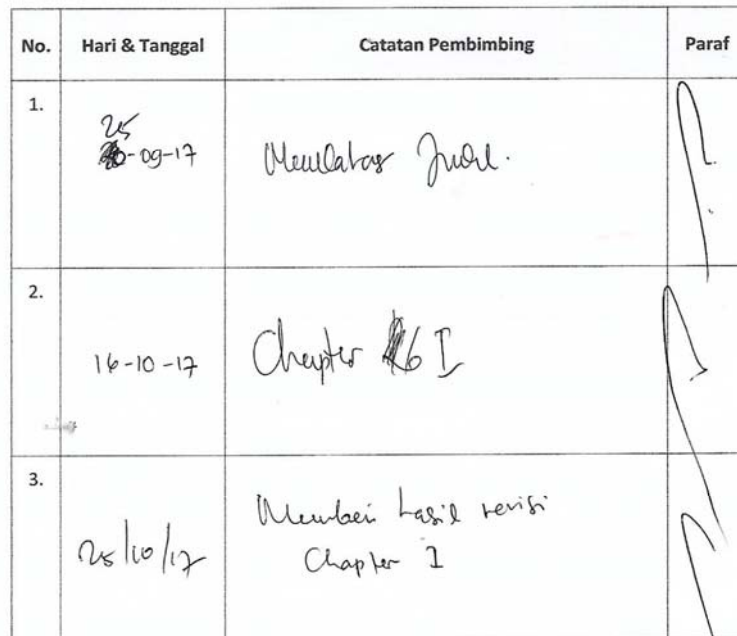 No. Hari & Tanggal Catatan Pembimbing Paraf
1.
25
-09-17 Judul.
2.
16-10-17 Chapter I
3.
Memberi hasil revisi
25/10/17 Chapter I